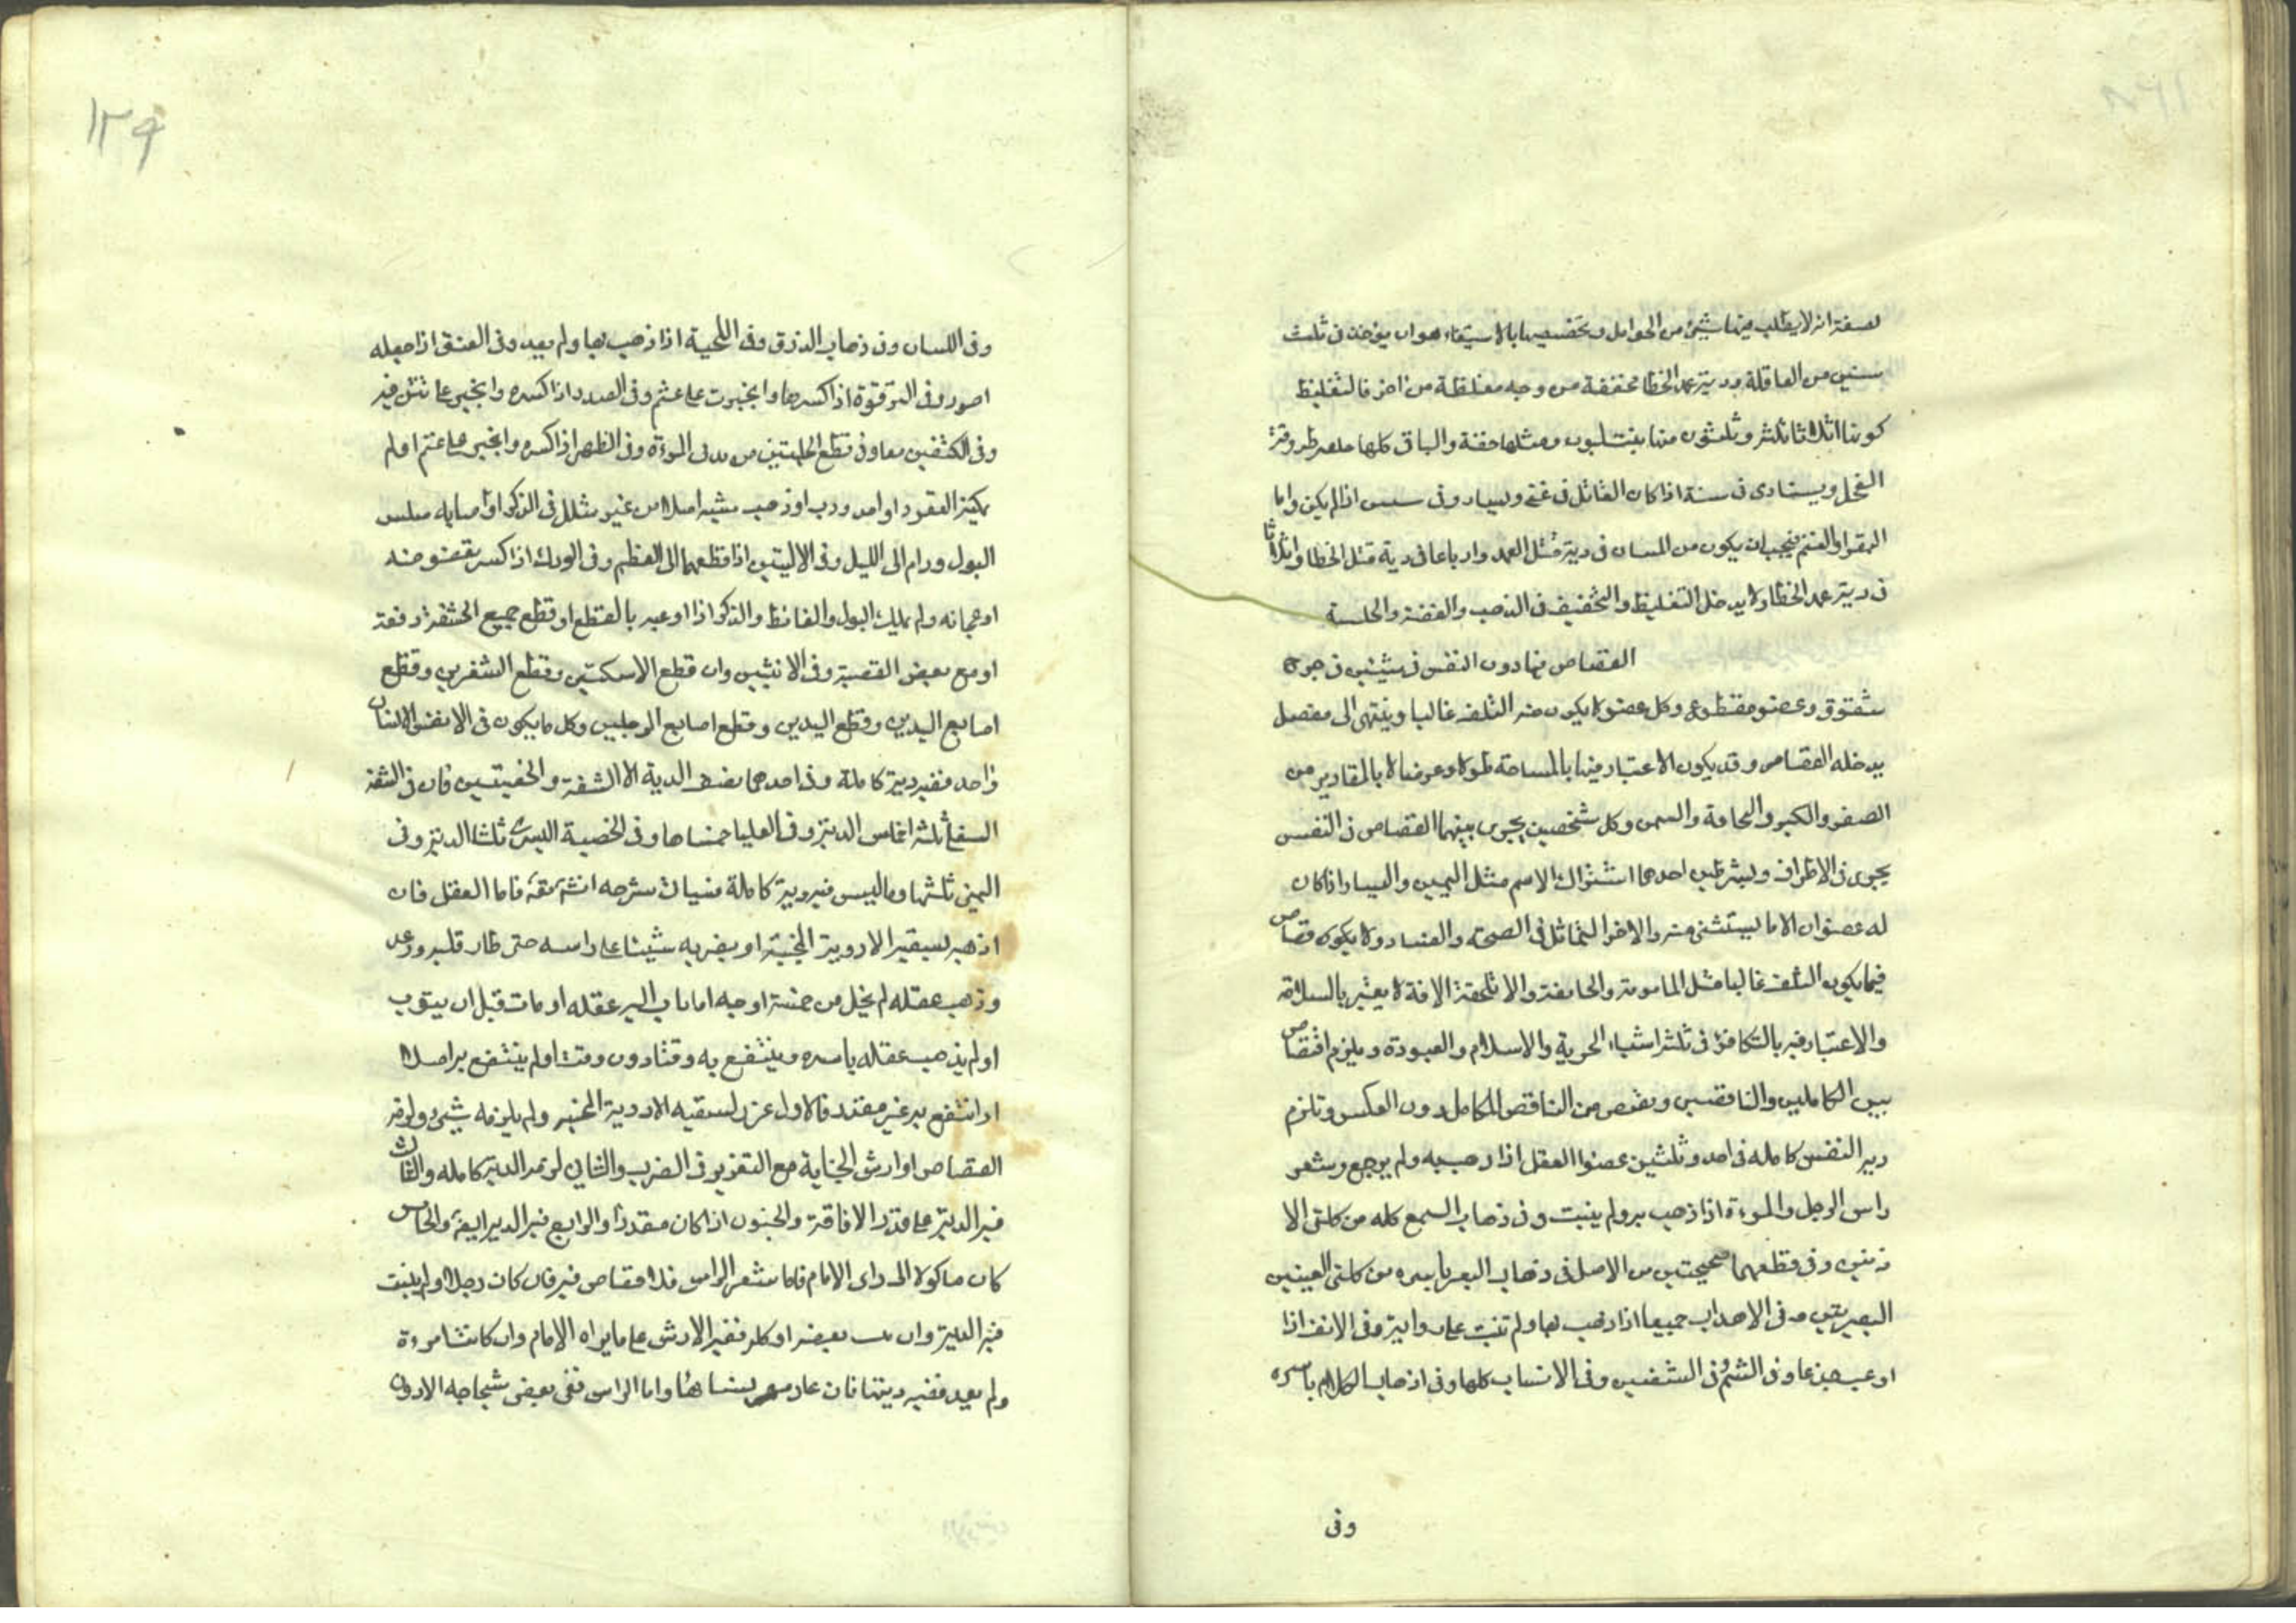 لصفة انه لا يطلب فيها شيئ من الحوامل وتخصيصها بالاستيفاء هو ان يؤخذ فى ثلث
سنين من العاقلة ودية عمد الخطا مخففة من وجه مغلظة من اخر فالتغليظ
كونها اثلاثا ثلثة وثلثون منها بنت لبون ومثلها حقة والباقى كلها طروقة
الفحل ويستادى فى سنة اذا كان القاتل فى غنى ويسار وفى سنتين اذا لم يكن واما
البقر او الغنم فيجب ان يكون من المسان فى دية قتل العمد وارباعا فى دية قتل الخطا واثلاثا
فى دية عمد الخطا ولا يدخل التغليظ والتخفيف فى الذهب والفضة والحلة
القصاص فيما دون النفس فى شيئين فى جرح
شقوق وعضو مقطوع وكل عضو لا يكون منه التلف غالبا وينتهى الى مفصل
يدخله القصاص وقد يكون الاعتبار فيها بالمساحة طولا وعرضا لا بالمقادير من
الصغر والكبر والنحافة والسمن وكل شخصين يجرى بينهما القصاص فى النفس
يجرى فى الاطراف وبشرطين احدهما اشتراك الاسم مثل اليمين واليسار اذا كان
له عضوان الا ما يستثنى منه والاخر التماثل فى الصحة والفساد ولا يكون قصاص
فيما يكون التلف غالبا مثل المامومة والجايفة والا تلحقه الافة لا يعتبر بالسلامة
والاعتبار فيه بالتكافؤ فى ثلثة اشياء الحرية والاسلام والعبودة ويلزم اقتصاص
بين الكاملين والناقصين ويقتص من الناقص للكامل دون العكس وتلزم
دية النفس كاملة فى احد وثلثين عضوا العقل اذا ذهب به ولم يرجع وشعر
راس الرجل والمرءة اذا ذهب به ولم ينبت وفى ذهاب السمع كله من كلتى الا
ذنين وفى قطعهما صحيحتين من الاصل فى ذهاب البصر باسره من كلتى العينين
البصيرتين وفى الاهداب جميعا اذا ذهب بها ولم تنبت على رواية وفى الانف اذا
اوعب جدعا وفى الشم وفى الشفتين وفى الاسنان كلها وفى اذهاب الكلام باسره
وفى
١٢٩
وفى اللسان وفى ذهاب الذوق وفى اللحية اذا ذهب بها ولم يعد وفى العنق اذا جعله
اصور وفى الترقوة اذا كسرها وانجبرت على عثم وفى الصدر اذا كسره وانجبر على تثن فيه
وفى الكتفين معا وفى قطع الحلمتين من ثدى المرءة وفى الظهر اذا كسره وانجبر على عثم او لم
يمكنه القعود او احدودب او ذهب مشيه اصلا من غير شلل فى الذكر او اصابه سلس
البول ودام الى الليل وفى الاليتين اذا قطعهما الى العظم وفى الورك اذا كسر بعضوضه
او عجانه ولم يملك البول والغائط والذكر اذا اوعب بالقطع او قطع جميع الحشفة دفعة
او مع بعض القصبة وفى الانثيين وان قطع الاسكتين وقطع الشفرين وقطع
اصابع اليدين وقطع اليدين وقطع اصابع الرجلين وكل ما يكون فى الانسان
واحد ففيه دية كاملة وفى احدهما نصف الدية الا الشفة والخصيتين فان فى الشفة
السفلى ثلثة اخماس الدية وفى العليا خمساها وفى الخصية اليسرى ثلثا الدية وفى
اليمنى ثلثها وما ليس فيه دية كاملة فسياتى شرحه انشاءالله فاما العقل فان
اذهبه بسقيه الادوية المجننة او بضربه شيئا على راسه حتى طار قلبه ورعد
وذهب عقله لم يخل من خمسة اوجه اما ان اب اليه عقله او مات قبل ان يتوب
او لم يذهب عقله باسره وينتفع به وقتا دون وقت او لم ينتفع به اصلا
او انتفع به غير مقتد فالاول عزر لسقيه الادوية المجننة ولم يلزمه شيئ ولزمه
القصاص او ارش الجناية مع التعزير فى الضرب والثانى لزمه الدية كامله والثالث
فيه الدية على قدر الافاقة والجنون اذا كان مقدرا والرابع فيه الدية ايضا والخامس
كان ماكولا الى راى الامام فاما شعر الراس فلا قصاص فيه فان كان رجلا ولم ينبت
فيه الدية وان نبت بعضه او كله ففيه الارش على ما يراه الامام وان كانت امرءة
ولم يعد ففيه ديتها فان عاد مهر نسائها واما الراس ففى بعض شجاجه الارش